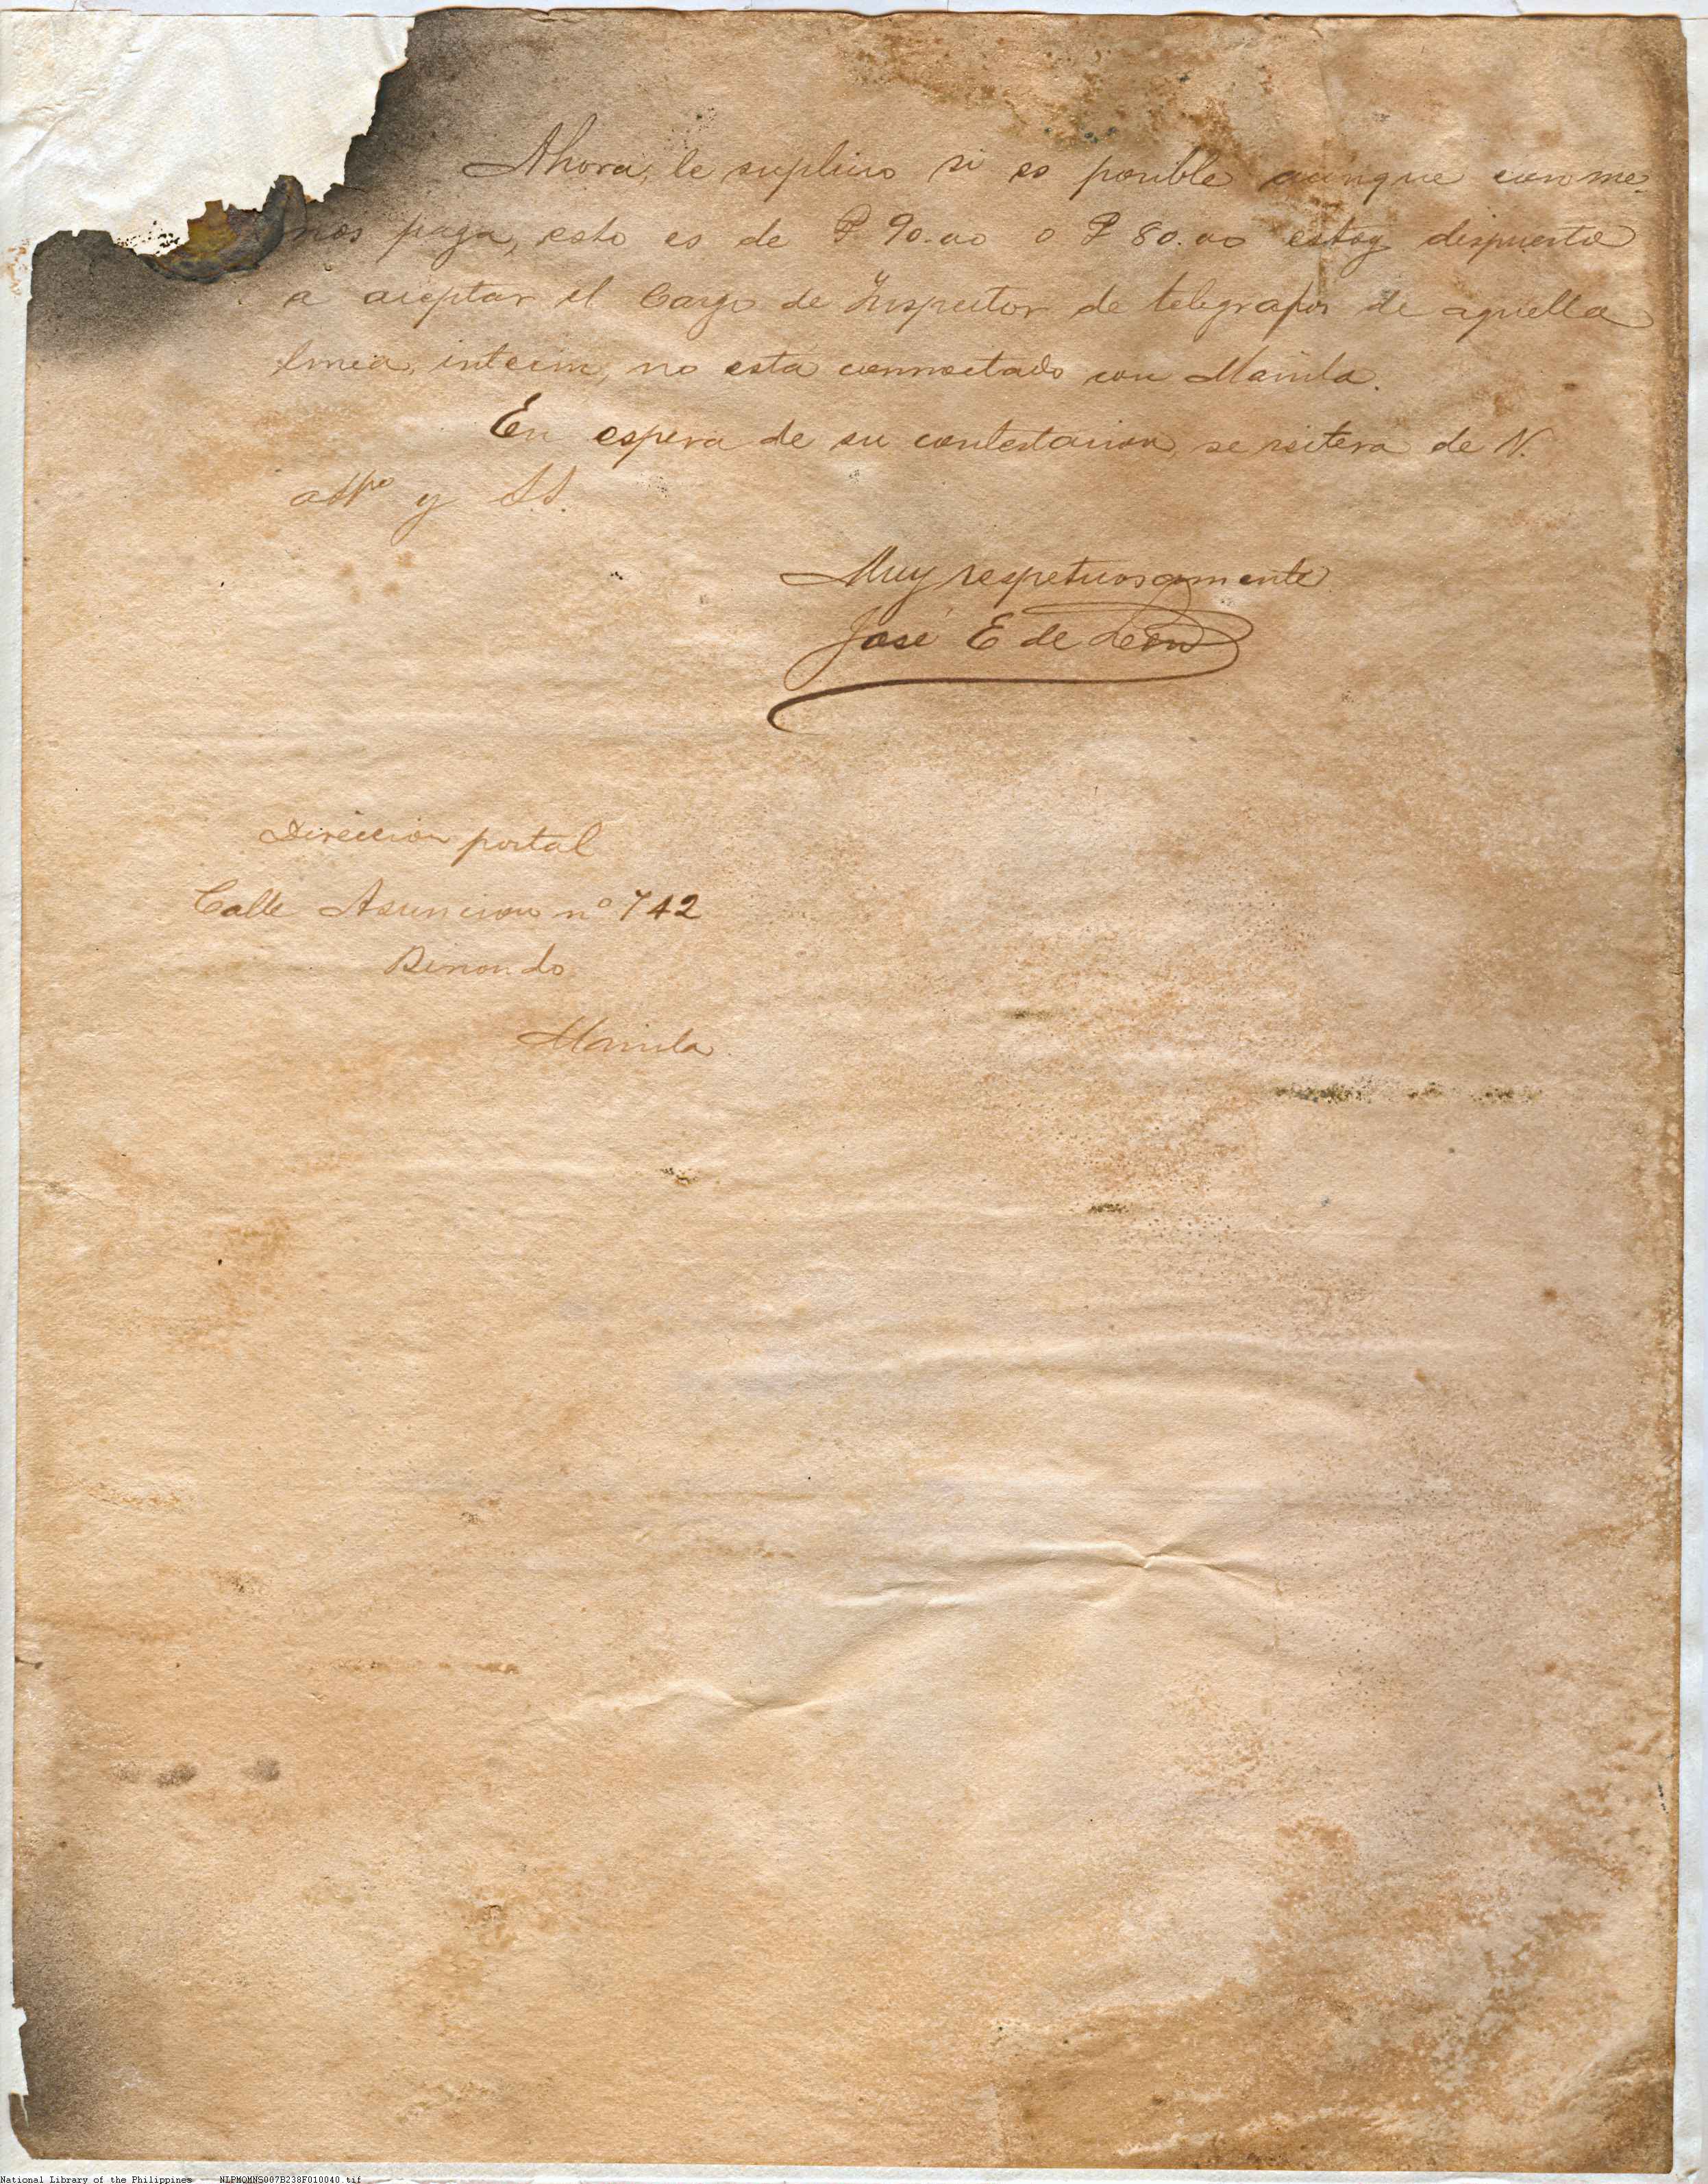 Ahora, le suplico si es posible aunque con me-
nos paga, esto es de ₱ 90.00 o ₱ 80.00 estoy dispuesto
a aceptar el Cargo de Inspector de telegrafos de aquella
linea, interin, no esta connectado con Manila.
En espera de su contestacion, se reitera de V.
attº y S.S.
Muy respetuosamente
José E de León
Direccion postal
Calle Asuncion nº 742
Binondo
Manila
National Library of the Philippines NLPMOMNS007B238F010040.tif